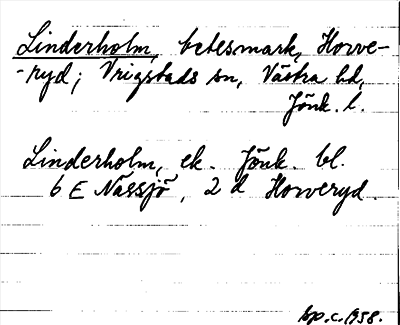 Linderholm, betesmark, Horve-
-ryd; Vrigstads sn, Västra hd,
Jönk. l.
Linderholm, ek. Jönk. bl.
6 E Nässjö, 2 d Horveryd.
bp.c.1958.